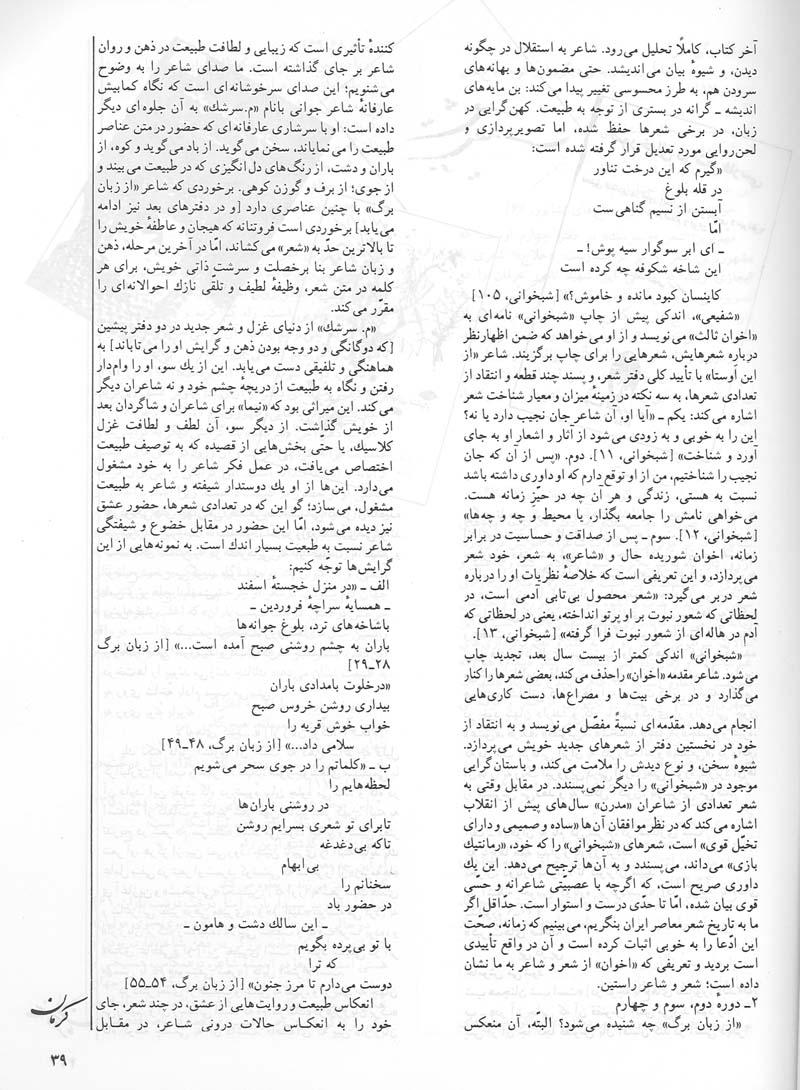 آخر کتاب، کاملاً تحلیل می‌رود. شاعر به استقلال در چگونه
دیدن، و شیوهٔ بیان می‌اندیشد. حتی مضمون‌ها و بهانه‌های
سرودن هم، به طرز محسوسی تغییر پیدا می‌کند: بن مایه‌های
اندیشه ـ گرانه در بستری از توجه به طبیعت. کهن‌گرایی در
زبان، در برخی شعرها حفظ شده، اما تصویرپردازی و
لحن‌روایی مورد تعدیل قرار گرفته شده است:
«گیرم که این درخت تناور
در قله بلوغ
آبستن از نسیم گناهی‌ست
امّا
ـ ای ابر سوگوار سیه پوش! ـ
این شاخه شکوفه چه کرده است
کاینسان کبود مانده و خاموش؟» [شبخوانی، ۱۰۵]
«شفیعی»، اندکی پیش از چاپ «شبخوانی» نامه‌ای به
«اخوان ثالث» می‌نویسد و از او می‌خواهد که ضمن اظهارنظر
درباره شعرهایش، شعرهایی را برای چاپ برگزیند. شاعر «از
این اَوستا» با تأیید کلی دفتر شعر، و پسند چند قطعه و انتقاد از
تعدادی شعرها، به سه نکته در زمینهٔ میزان و معیار شناخت شعر
اشاره می‌کند: یکم ـ «آیا او، آن شاعر جان نجیب دارد یا نه؟
این را به خوبی و به زودی می‌شود از آثار و اشعار او به جای
آورد و شناخت» [شبخوانی، ۱۱]. دوم. «پس از آن که جان
نجیب را شناختیم، من از او توقع دارم که او داوری داشته باشد
نسبت به هستی، زندگی و هر آن چه در حیّزِ زمانه هست.
می‌خواهی نامش را جامعه بگذار، یا محیط و چه و چه‌ها»
[شبخوانی، ۱۲]. سوم ـ پس از صداقت و حساسیت در برابر
زمانه، اخوان شوریده حال و «شاعر»، به شعر، خود شعر
می‌پردازد، و این تعریفی است که خلاصهٔ نظریات او را درباره
شعر دربر می‌گیرد: «شعر محصول بی‌تابی آدمی است، در
لحظاتی که شعور نبوت بر او پرتو انداخته، یعنی در لحظاتی که
آدم در هاله‌ای از شعور نبوت فرا گرفته» [شبخوانی، ۱۳].
«شبخوانی» اندکی کمتر از بیست سال بعد، تجدید چاپ
می‌شود. شاعر مقدمه «اخوان» را حذف می‌کند، بعضی شعرها را کنار
می‌گذارد و در برخی بیت‌ها و مصراع‌ها، دست کاری‌هایی
انجام می‌دهد. مقدّمه‌ای نسبةً مفصّل می‌نویسد و به انتقاد از
خود در نخستین دفتر از شعرهای جدید خویش می‌پردازد.
شیوهٔ سخن، و نوع دیدش را ملامت می‌کند، و باستان‌گرایی
موجود در «شبخوانی» را دیگر نمی‌پسندد. در مقابل وقتی به
شعر تعدادی از شاعران «مدرن» سال‌های پیش از انقلاب
اشاره می‌کند که در نظر موافقان آن‌ها «ساده و صمیمی و دارای
تخیّل قوی» است، شعرهای «شبخوانی» را که خود، «رمانتیك
بازی» می‌داند، می‌پسندد و به آن‌ها ترجیح می‌دهد. این یك
داوری صریح است، که اگرچه با عصبیّتی شاعرانه و حسی
قوی بیان شده، امّا تا حدّی درست و استوار است. حدّاقل اگر
ما به تاریخ شعر معاصر ایران بنگریم، می‌بینیم که زمانه، صحّت
این ادّعا را به خوبی اثبات کرده است و آن در واقع تأییدی
است بردید و تعریفی که «اخوان» از شعر و شاعر به ما نشان
داده است؛ شعر و شاعر راستین.
۲ـ دورهٔ دوم، سوم و چهارم
«از زبان برگ» چه شنیده می‌شود؟ البتّه، آن منعکس
کنندهٔ تأثیری است که زیبایی و لطافت طبیعت در ذهن و روان
شاعر بر جای گذاشته است. ما صدای شاعر را به وضوح
می‌شنویم؛ این صدای سرخوشانه‌ای است که نگاه کمابیش
عارفانهٔ شاعر جوانی بانام «م.سرشك» به آن جلوه‌ای دیگر
داده است: او با سرشاری عارفانه‌ای که حضور در متن عناصر
طبیعت را می‌نمایاند، سخن می‌گوید. از باد می‌گوید و کوه، از
باران و دشت، از رنگ‌های دل‌انگیزی که در طبیعت می‌بیند و
از جوی؛ از برف و گوزن کوهی. برخوردی که شاعر «از زبان
برگ» با چنین عناصری دارد [و در دفترهای بعد نیز ادامه
می‌یابد] برخوردی است فروتنانه که هیجان و عاطفهٔ خویش را
تا بالاترین حدّ به «شعر» می‌کشاند، امّا در آخرین مرحله، ذهن
و زبان شاعر بنا برخصلت و سرشت ذاتی خویش، برای هر
کلمه در متن شعر، وظیفهٔ لطیف و تلقی نازك احوالانه‌ای را
مقرّر می‌کند.
«م. سرشك» از دنیای غزل و شعر جدید در دو دفتر پیشین
[که دوگانگی و دو وجه بودن ذهن و گرایش او را می‌تاباند] به
هماهنگی و تلفیقی دست می‌یابد. این از یك سو، او را وام‌دار
رفتن و نگاه به طبیعت از دریچهٔ چشم خود و نه شاعران دیگر
می‌کند. این میراثی بود که «نیما» برای شاعران و شاگردان بعد
از خویش گذاشت. از دیگر سو، آن لطف و لطافت غزل
کلاسیك، یا حتّی بخش‌هایی از قصیده که به توصیف طبیعت
اختصاص می‌یافت، در عمل فکر شاعر را به خود مشغول
می‌دارد. این‌ها از او یك دوستدار شیفته و شاعر به طبیعت
مشغول، می‌سازد؛ گو این که در تعدادی شعرها، حضور عشق
نیز دیده می‌شود، امّا این حضور در مقابل خضوع و شیفتگی
شاعر نسبت به طبعیت بسیار اندك است. به نمونه‌هایی از این
گرایش‌ها توجّه کنیم:
الف ـ «در منزل خجستهٔ اسفند
ـ همسایهٔ سراچهٔ فروردین ـ
باشاخه‌های ترد، بلوغ جوانه‌ها
باران به چشم روشنی صبح آمده است...» [از زبان برگ
۲۸ـ۲۹]
«درخلوت بامدادی باران
بیداری روشن خروس صبح
خواب خوش قریه را
سلامی داد...» [از زبان برگ، ۴۸ـ۴۹]
ب ـ «کلماتم را در جوی سحر می‌شویم
لحظه‌هایم را
در روشنی باران‌ها
تابرای تو شعری بسرایم روشن
تاکه بی‌دغدغه
بی‌ابهام
سخنانم را
در حضور باد
ـ این سالك دشت و هامون ـ
با تو بی‌پرده بگویم
که ترا
دوست می‌دارم تا مرز جنون» [از زبان برگ، ۵۴ـ۵۵]
انعکاس طبیعت و روایت‌هایی از عشق، در چند شعر، جای
خود را به انعکاس حالات درونی شاعر، در مقابل
کرمان
۳۹